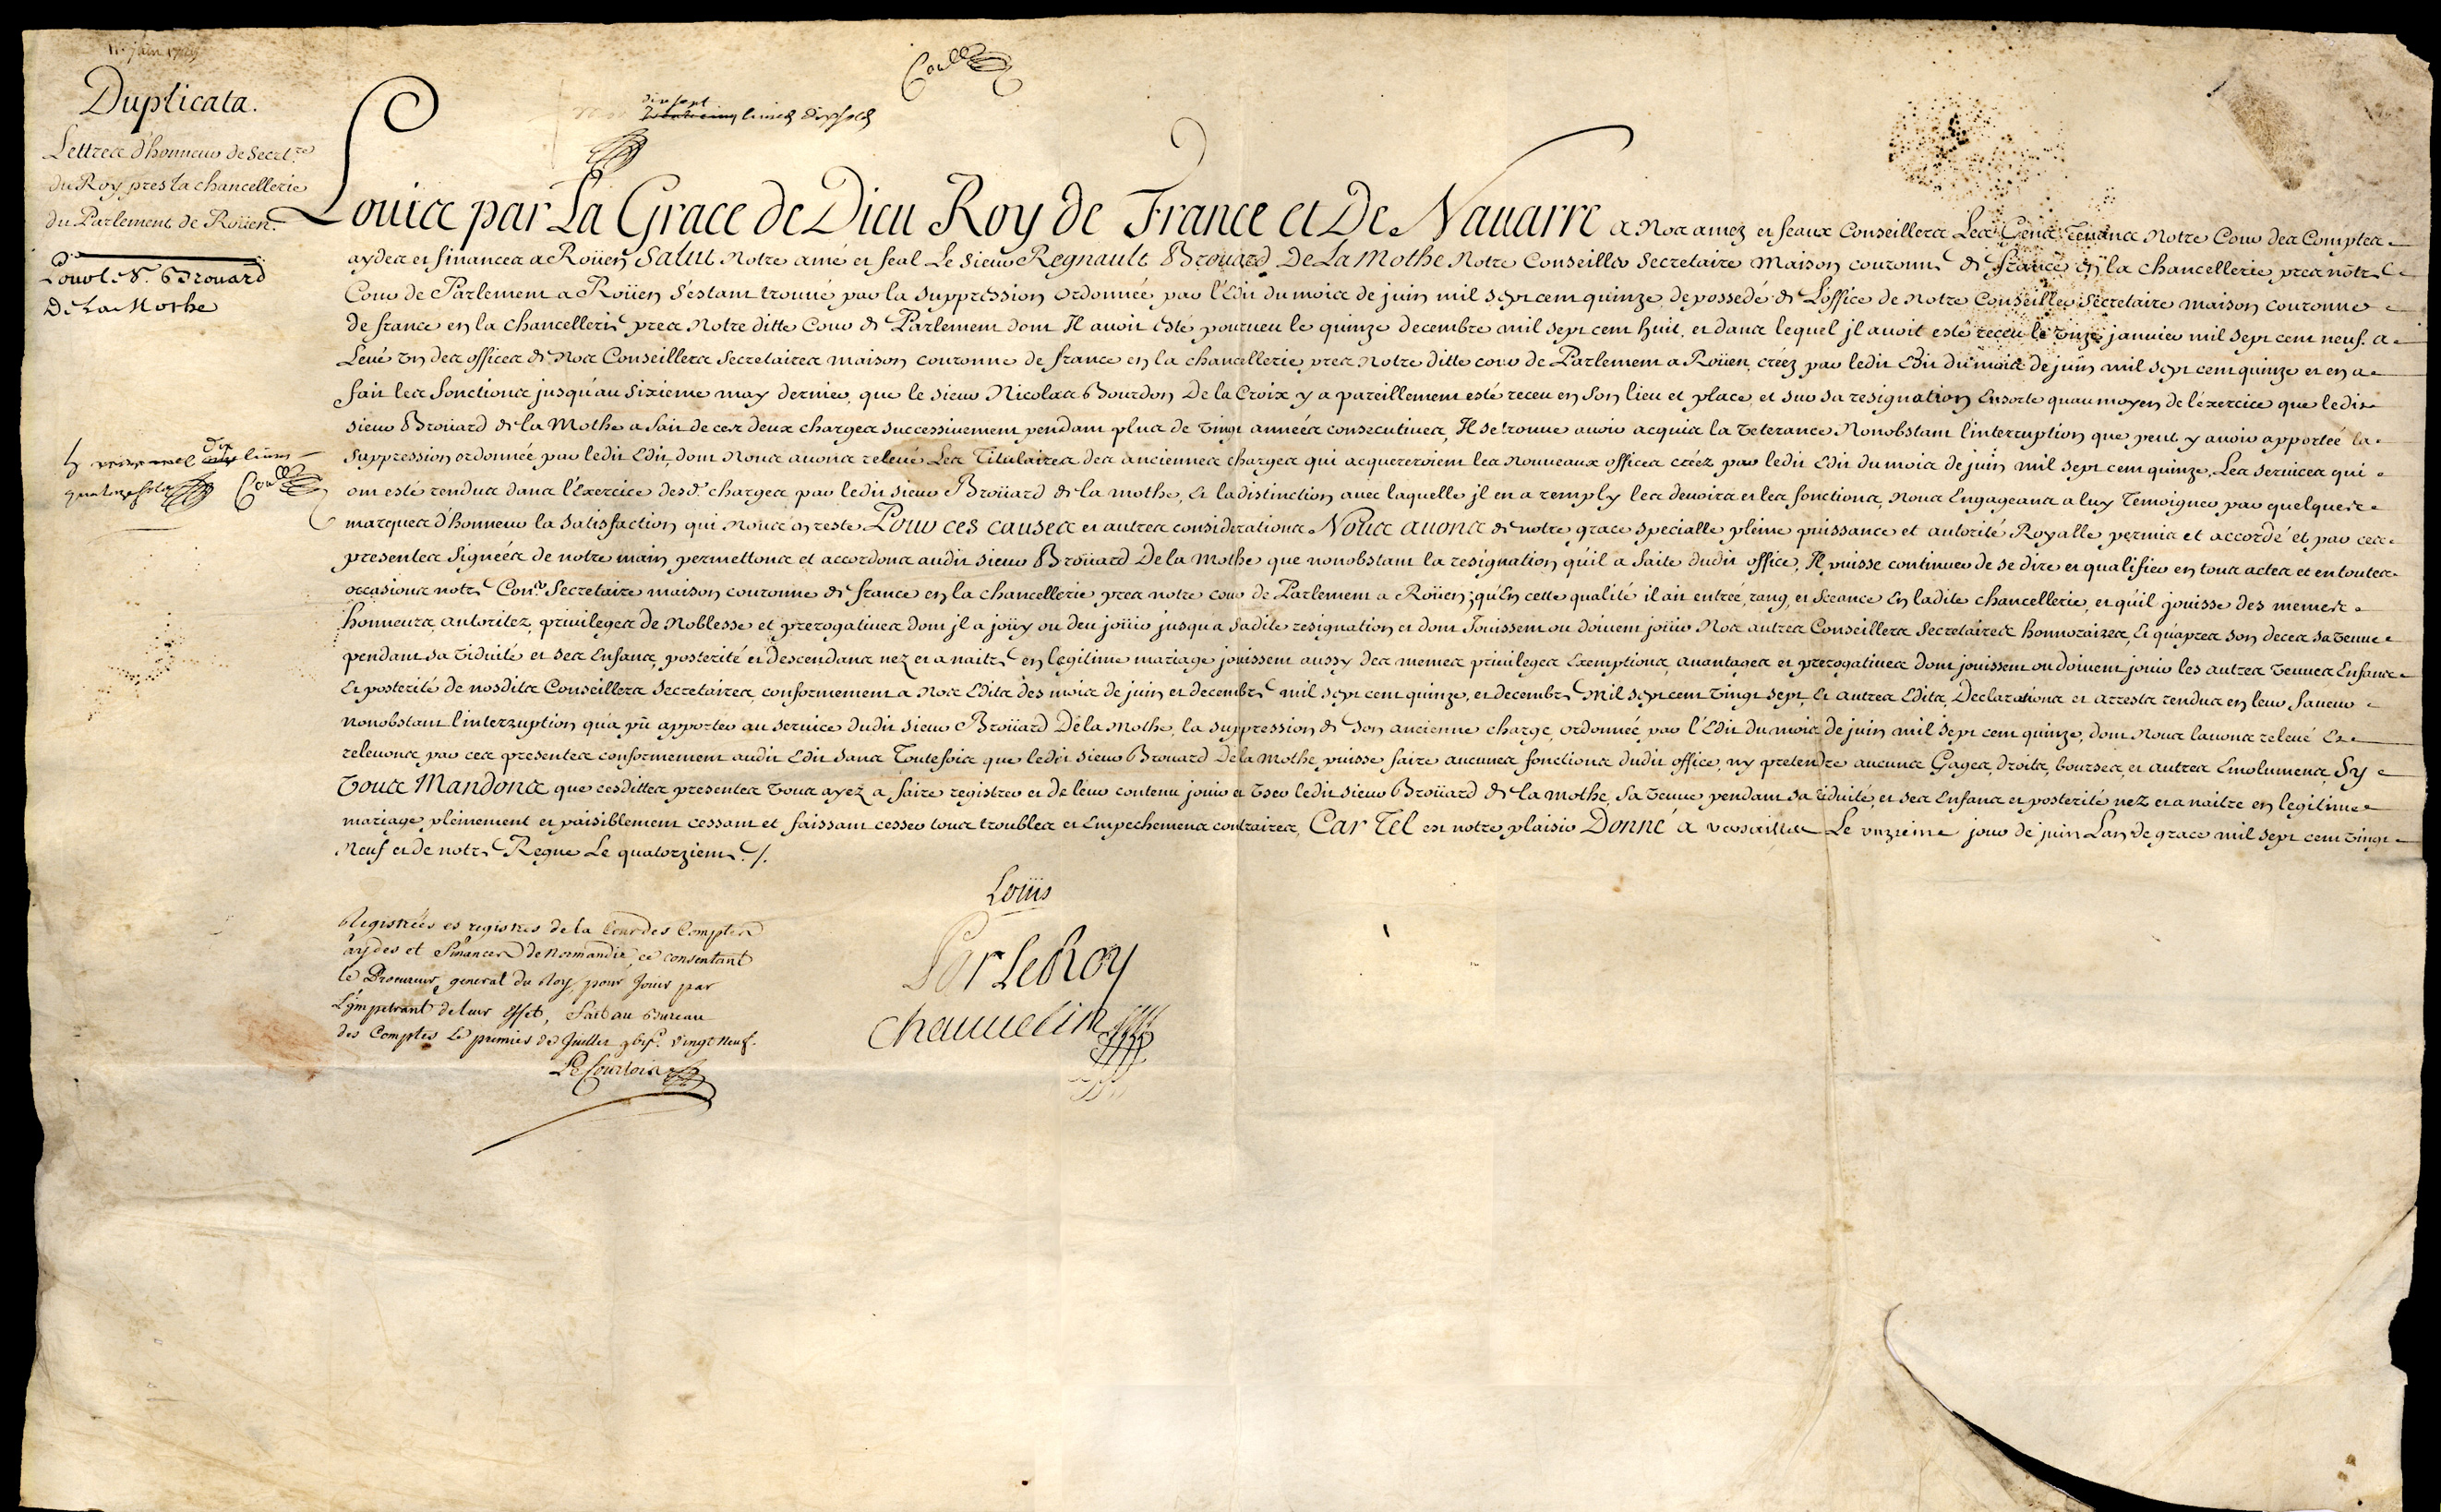 11 juin 1729
Duplicata.
Lettres d'honneur de Secret.re
du Roy pres la chancellerie
du Parlement de Roüen.
Pour le Sr. Brouard
De La Mothe
dix sept
livres dix sols
Louis par La Grace de Dieu Roy de France et De Nauarre a Nos amez et feaux Conseillers Les Gens Tenans Notre Cour des Comptes
aydes et finances a Roüen Salut Notre amé et feal Le Sieur Regnault Broüard De La Mothe Notre Conseiller Secretaire Maison couronne de france en la chancellerie pres notre
Cour de Parlement a Roüen s'estant trouué par la suppression ordonnée par l'Edit du mois de juin mil sept cent quinze, depossedé de L'office de Notre Conseiller Secretaire maison couronne
de france en la chancellerie pres Notre ditte Cour de Parlement dont Il auoit esté pourueu le quinze decembre mil sept cent huit, et dans lequel jl auoit esté receu le onze januier mil sept cent neuf. a
Leué un des offices de Nos Conseillers Secretaires maison couronne de france en la chancellerie pres Notre ditte cour de Parlement a Roüen, créez par ledit Edit du mois de juin mil sept cent quinze et en a
fait les fonctions jusqu'au sixieme may dernier, que le sieur Nicolas Bourdon De la Croix y a pareillement esté receu en son lieu et place, et sur sa resignation Ensorte quau moyen de l'éxercice que ledit
sieur Broüard de la Mothe a fait de ces deux charges successiuement pendant plus de vingt années consecutiues, Il se trouue auoir acquis la veterance Nonobstant l'interruption que peut y auoir apportée la
Suppression ordonnée par ledit Edit, dont Nous auons releué Les Titulaires des anciennes charges qui acquereroient les nouueaux offices créez par ledit Edit du mois de juin mil sept cent quinze, Les seruices qui
ont esté rendus dans l'Exercice desd. charges par ledit sieur Broüard de la mothe, Et la distinction auec laquelle jl en a remply les deuoirs et les fonctions, Nous Engageans a luy Temoigner par quelques
marques d'honneur la satisfaction qui Nous en reste Pour ces causes et autres considerations Nous auons de notre grace specialle pleine puissance et autorité Royalle permis et accordé et par ces
presentes signées de notre main permettons et accordons audit sieur Broüard De la Mothe que nonobstant la resignation qu'il a faite dudit office, Il puisse continuer de se dire et qualifier en tous actes et en toutes
occasions notre Con.er Secretaire maison couronne de france en la chancellerie pres notre cour de Parlement a Roüen; qu'En cette qualité il ait entrée, rang, et Sceance En ladite chancellerie, et qu'il jouisse des memes
honneurs, autoritez, priuileges de Noblesse et prerogatiues dont jl a joüy ou deu joüir jusqu'a sadite resignation et dont Jouissent ou doiuent joüir Nos autres Conseillers Secretaires honnoraires, Et qu'apres son deces sa veuue
pendant sa viduité et ses Enfans, posterité et descendans nez et a naitre en legitime mariage jouissent aussy des memes priuileges Exemptions, auantages et prerogatiues dont jouissent ou doiuent jouir les autres veuues Enfans
Et posterité de nosdits Conseillers Secretaires, conformement a Nos Edits des mois de juin et decembre mil sept cent quinze, et decembre Mil sept cent vingt sept, Et autres Edits, Declarations et arrests rendus en leur faueur
nonobstant l'interruption qu'a pû apporter au seruice dudit sieur Broüard De la Mothe, la suppression de son ancienne charge, ordonnée par l'Edit du mois de juin mil sept cent quinze, dont Nous lauons releué Et
releuons par ces presentes conformement audit Edit sans Toutefois que ledit sieur Brouard De la Mothe puisse faire aucunes fonctions dudit office, ny pretendre aucuns Gages, droits, bourses, et autres Emolumens Sy
vous Mandons que cesdittes presentes vous ayez a faire registrer et de leur contenu jouir et vser ledit sieur Broüard de la mothe, sa veuue pendant sa viduité, et ses Enfans et posterité nez et a naitre en legitime
mariage, pleinement et paisiblement cessant et faissant cesser tous troubles et Empechemens contraires, Car Tel est notre plaisir Donné a versailles Le vnzieme jour de juin Lan de grace mil sept cent vingt
Neuf et de notre Regne Le quatorzieme ./.
Loüis
Par Le Roy
Chauuelin
Registrées es registres de la Cour des Comptes
aydes et Finances de Normandie, ce consentant
le Procureur general du Roy, pour jouir par
L'impetrant de leur effet, Fait au Bureau
des Comptes le premier de Juillet vingt neuf.
Le Courtois